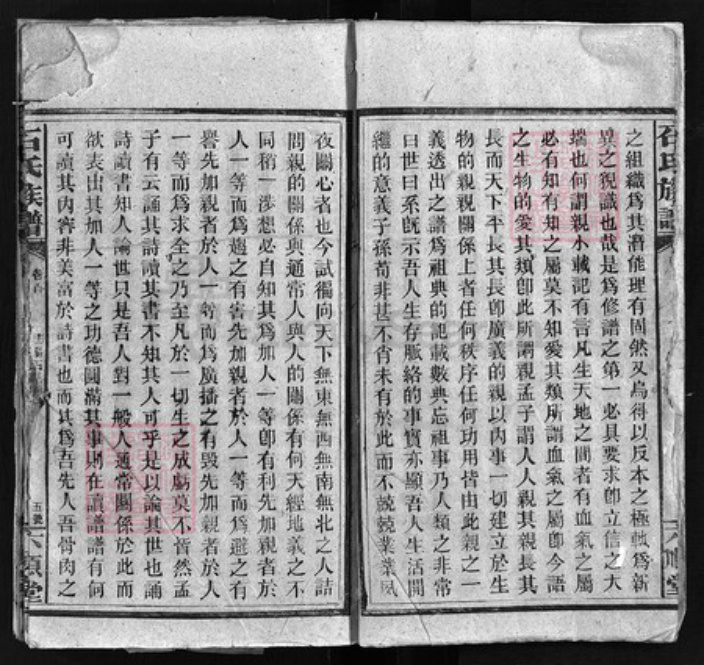 石氏族譜
六順堂
之組織爲其潛能理有固然又烏得以反本之極軌爲新
異之猊議也哉是爲修譜之第一必具要求卽立信之大
端也何謂親小戴記有言凡生天地之間者有血氣之屬
必有知有知之屬莫不知愛其類所謂血氣之屬卽今語
之生物的愛其類卽此所謂親孟子謂人人親其親長其
長而天下平長其長卽廣義的親以內事一切建立於生
物的親親關係上者任何秩序任何功用皆由此親之一
義透出之譜爲祖典的記載數典忘祖事乃人類之非常
曰世曰系旣示吾人生存脈絡的事實亦顯吾人生活開
繼的意義子孫苟非甚不肖未有於此而不兢兢業業夙
夜關心者也今試徧向天下無東無西無南無北之人詰
問親的關係與通常人與人的關係有何天經地義之不
同稍一涉想必自知其爲加人一等卽有利先加親者於
人一等而爲趨之有害先加親者於人一等而爲避之有
譽先加親者於人一等而爲廣播之有毀先加親者於人
一等而爲求全之乃至凡於一切生之成虧莫不皆然孟
子有云誦其詩讀其書不知其人可乎是以論其世也誦
詩讀書知人論世只是吾人對一般人通常關係於此而
欲表出其加人一等之功德圓滿其事則在讀譜譜有何
可讀其內容非美富於詩書也而其爲吾先人吾骨肉之
石氏族譜
卷首
五號
六順堂